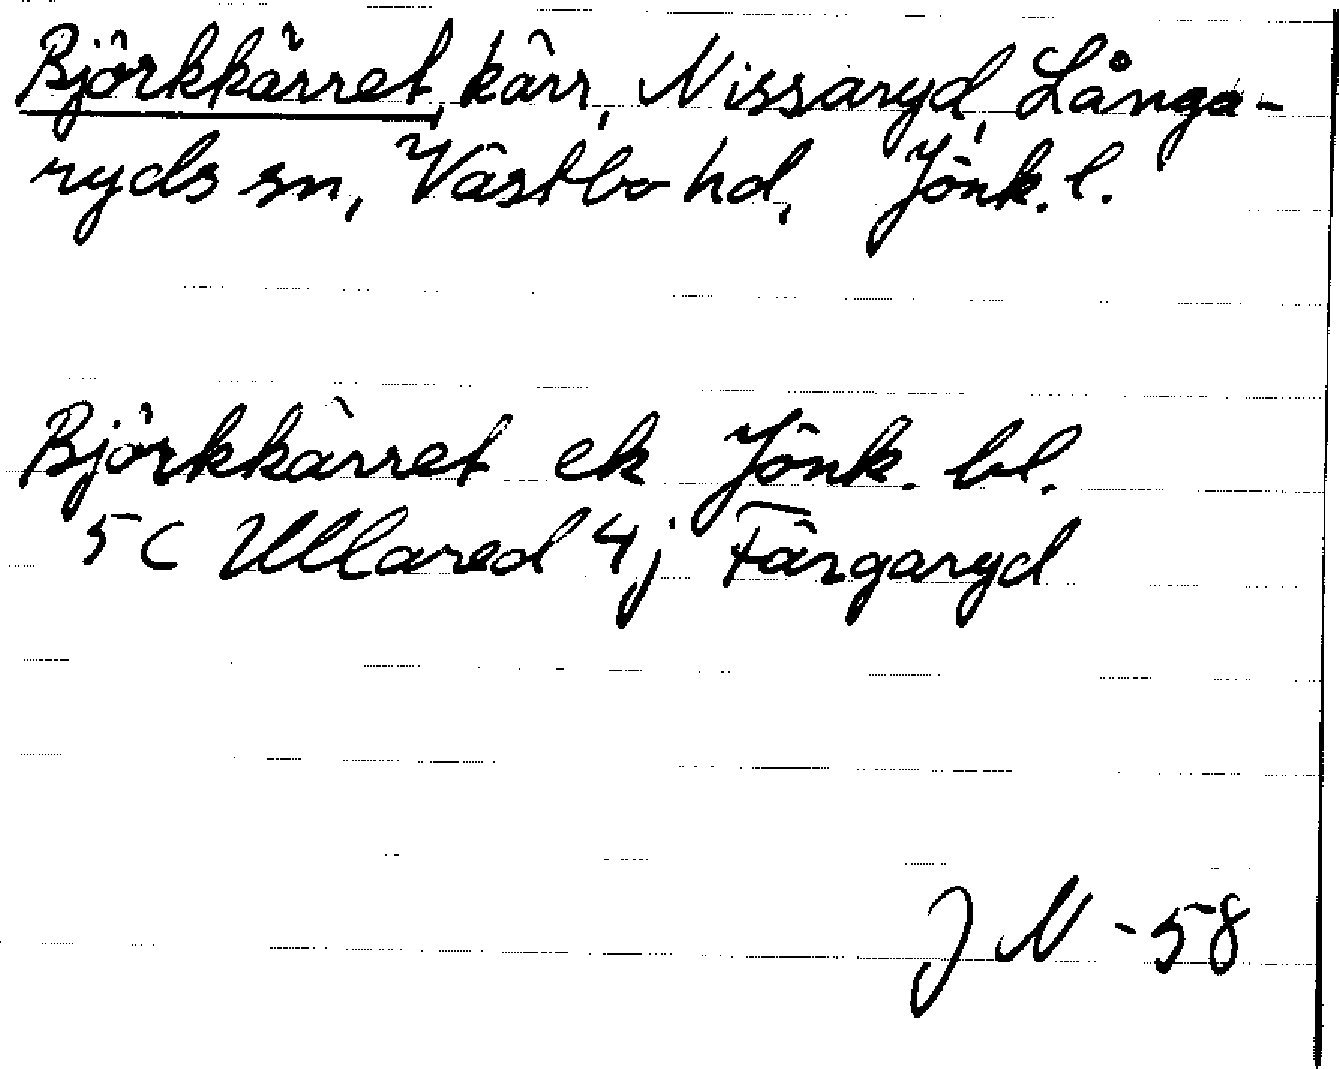 Björkkärret, kärr, Nissaryd, Långa-
ryds sn, Västbo hd, Jönk. l.
Björkkärret ek Jönk. bl.
5C Ullared 4j Färgaryd
J N -58